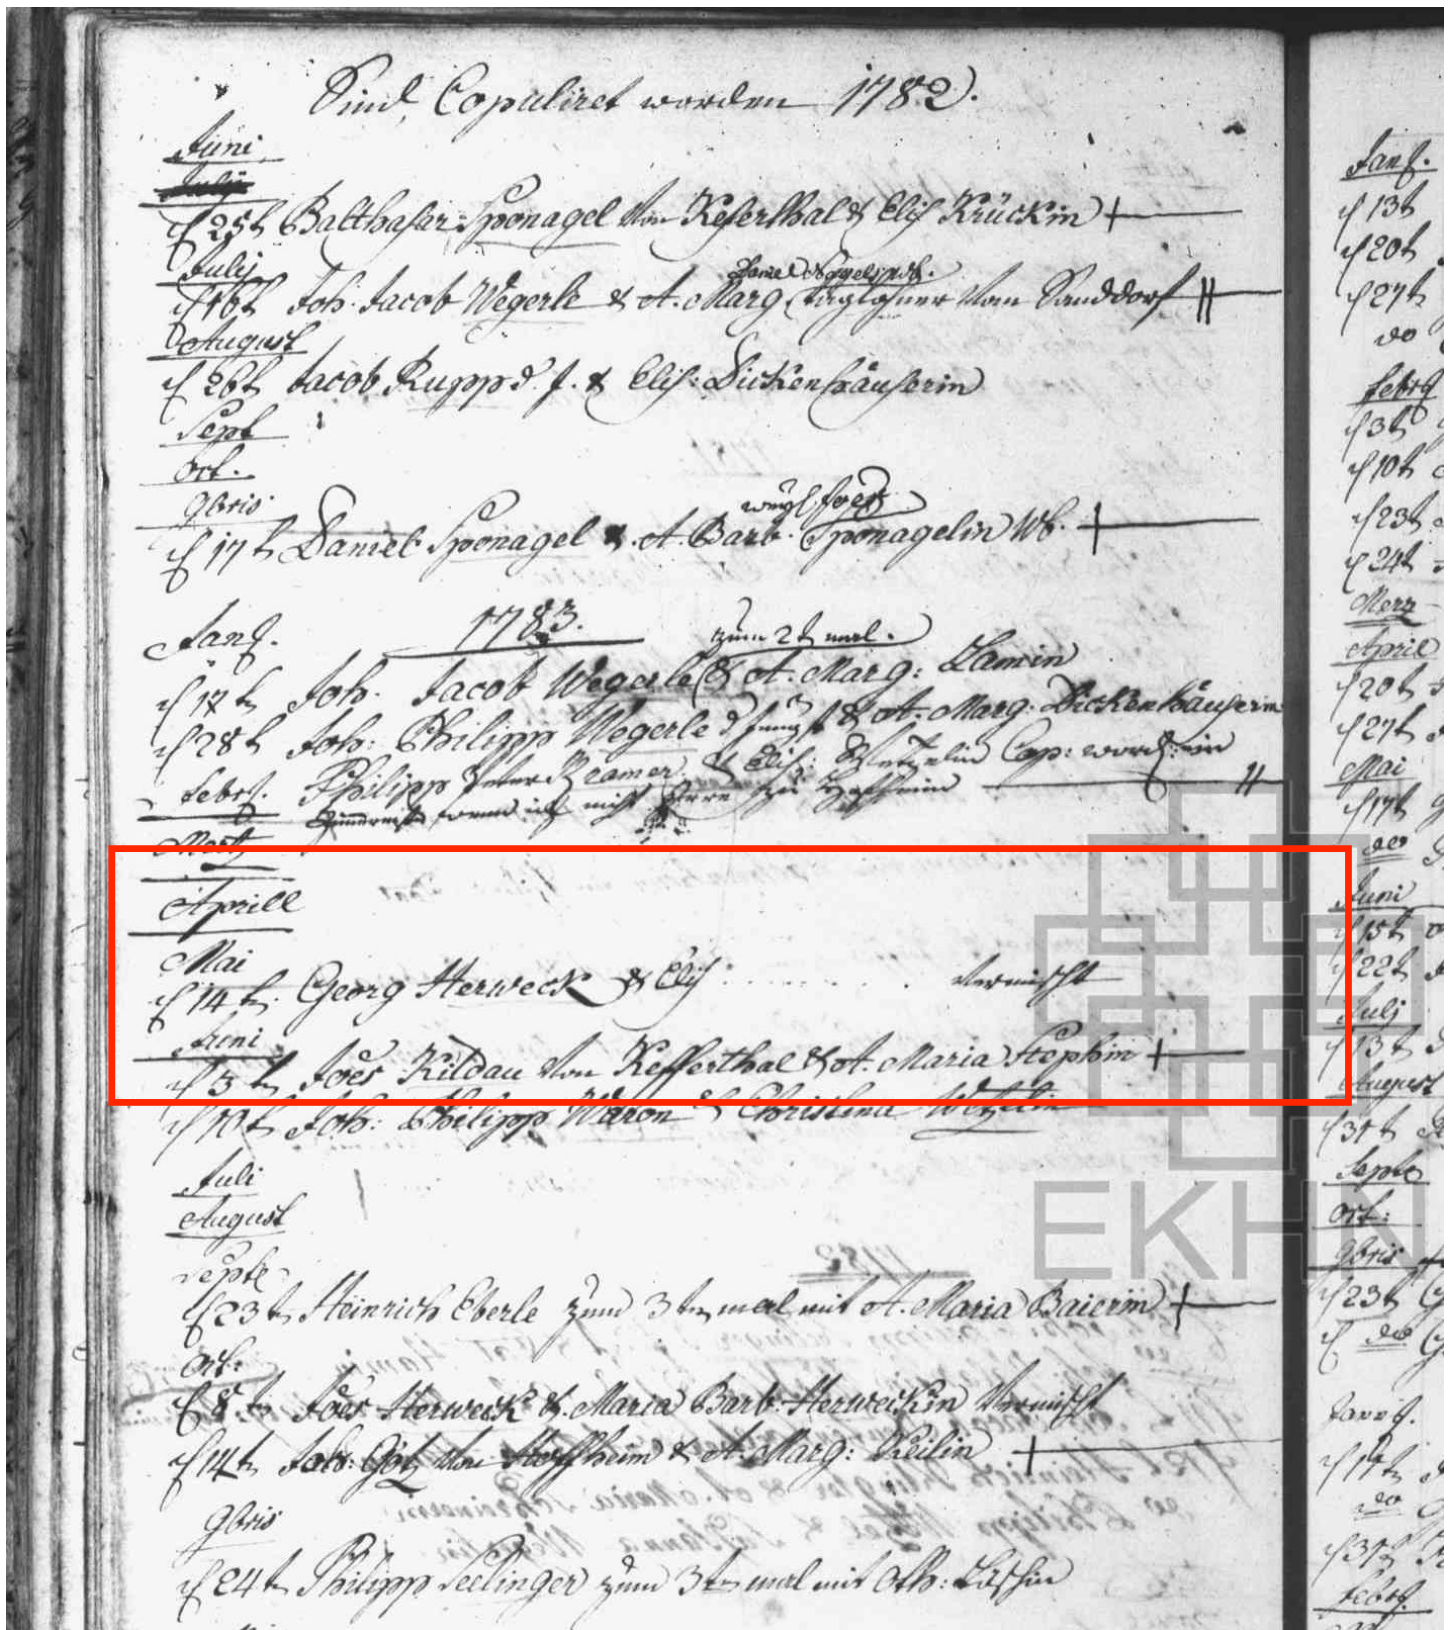 Sind Copuliret worden 1782.
Juni
July
d 25t Balthasar Sponagel von Keferthal & Elis Krückin
Julij
Daniel
d 16t Joh. Jacob Wegerle & A. Marg. taglöhner von Sanddorf
August
d 26t Jacob Rupp d. J. & Elis: Dickenhäuserin
Sept
Oct.
9bris
weyl. Joês
d 17t Daniel Sponagel & A. Barb. Sponagelin Wb.
1783.
Janr.
zum 2t mal.
d 17t Joh. Jacob Wegerle & A. Marg: Lamin
d 28t Joh: Philipp Wegerle d jüngst & A. Marg: Dickenhäuserin
Febr. Philipp Peter Kramer & Elis: Cop: word: in
nicht zu Hofheim
Mertz
Aprill
Mai
d 14t Georg Herweck & Elis . . . . . . . . vermischt
Juni
d 3t Joês Kildau von Kefferthal & A. Maria Stephin
d 10t Joh: Philipp Waron & Christina Wetzelin
Juli
August
Septe
d 23t Heinrich Eberle zum 3ten mal mit A. Maria Baierin
Oct:
d 8t Joês Herweck & Maria Barb. Herweckin vermischt
d 14t Joh: Götz von Hoffheim & A. Marg: Keilin
9bris
d 24t Philipp Seelinger zum 3ten mal mit Cath: Löschin
Janr.
d 13t
d 20t
d 27t
do
Febr
d 3t
d 10t
d 23t
d 24t
Merz
April
d 20t
d 27t
Mai
d 17t
do
Juni
d 15t
d 22t
Julj
d 13t
August
d 31t
Septe
Oct:
9bris
d 23t
d do
Janr.
d 17t
do
d 31t
Febr
EKHN